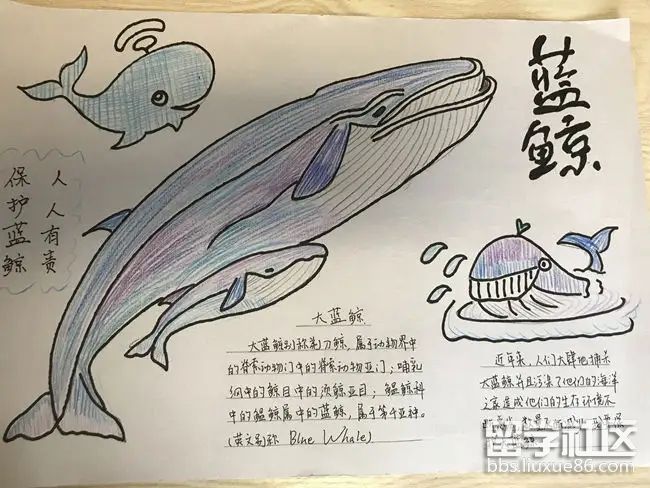 蓝鲸
保护蓝鲸
人人有责
大蓝鲸
大蓝鲸别称剃刀鲸,属于动物界中
的脊索动物门中的脊索动物亚门;哺乳
纲中的鲸目中的须鲸亚目;鳁鲸科
中的鳁鲸属中的蓝鲸,属于第千亚种。
(英文别称 Blue Whale)
近年来,人们大肆地捕杀
大蓝鲸并且污染了他们的海洋
之家造成他们的生存环境不
留学社区
bbs.liuxue86.com